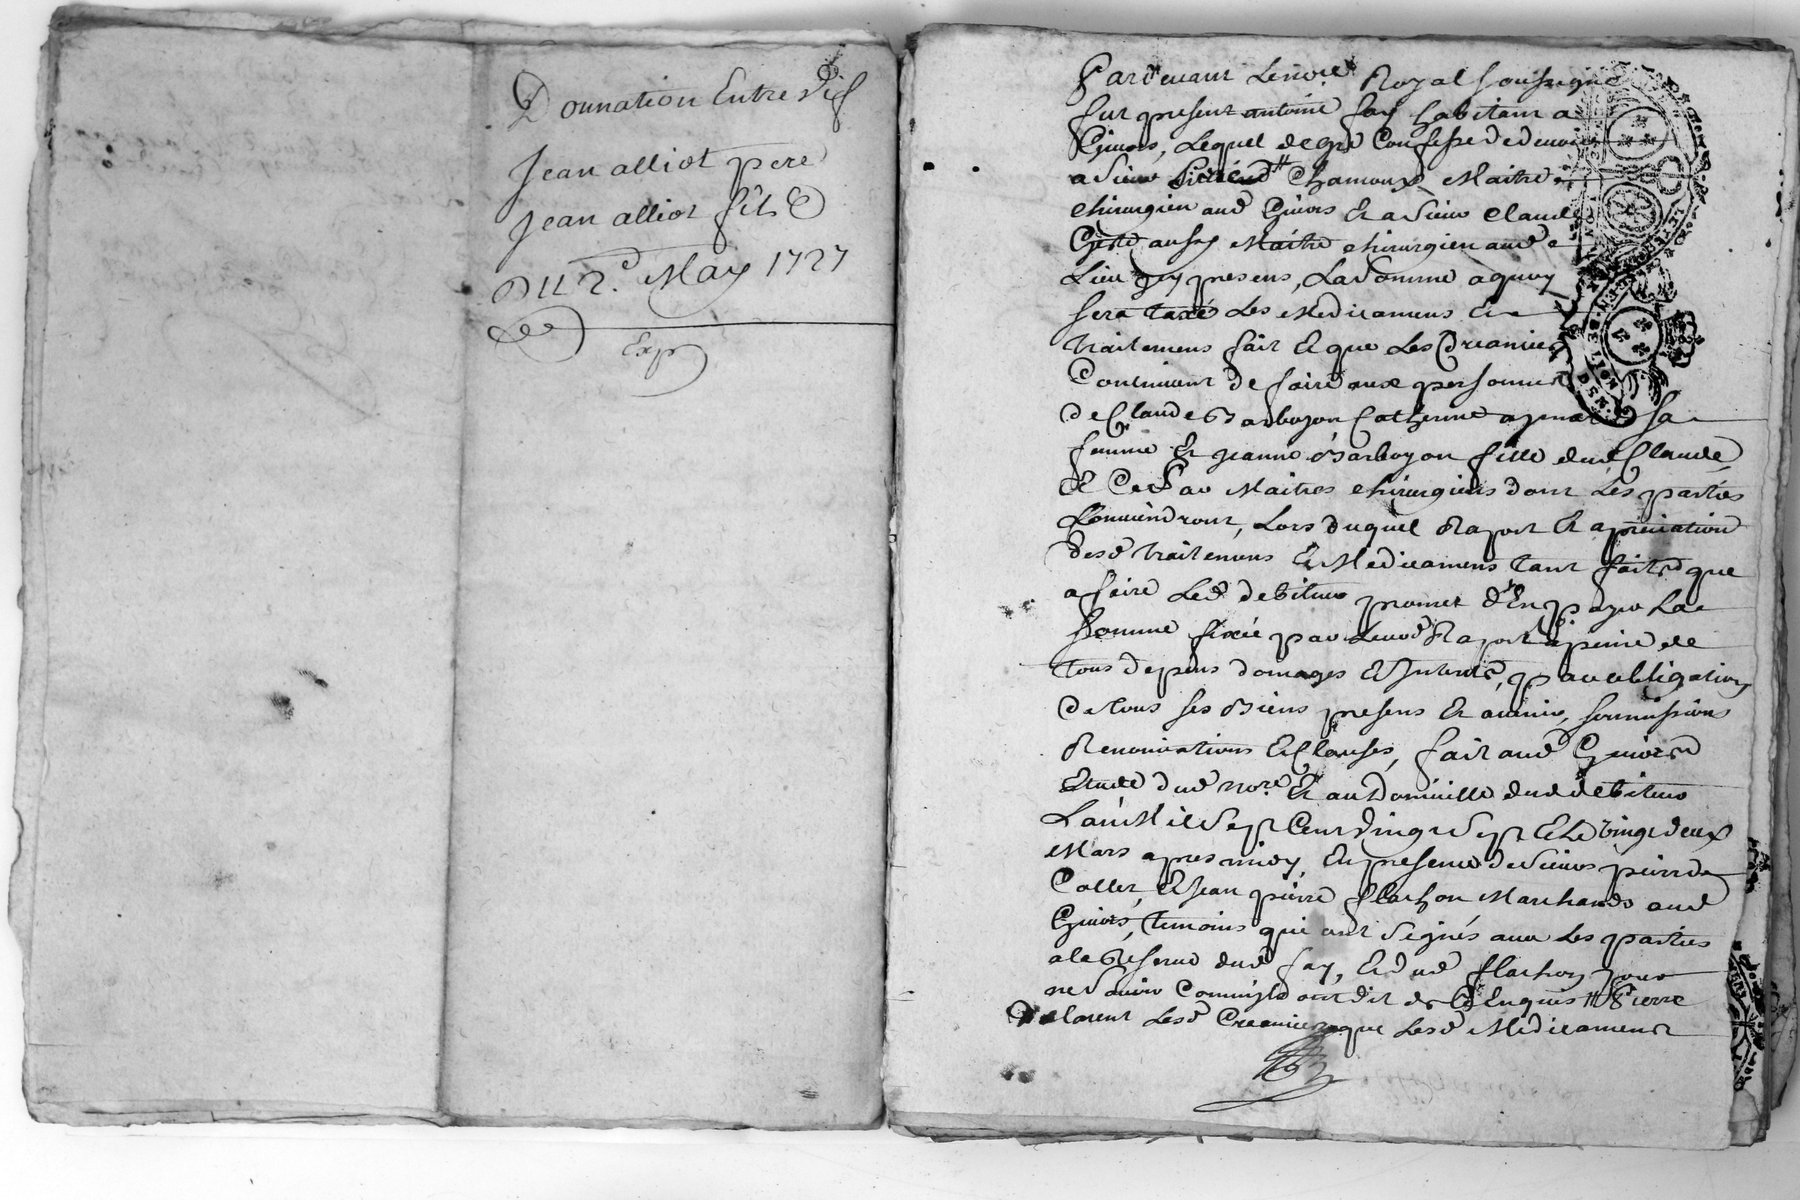 Donnation Entre vifs
Jean alliot pere
Jean alliot fils &
Du 2.e May 1727
Exp
Pardevant Le no.re Royal soussigné
fut present antoine fay habitant a
Givors, Lequel de gré Confesse devoir
a Sieur Chamoux Maitre
chirurgien aud Givors Et a Sieur Claude
aussy Maitre chirurgien aud
Lieu icy presens, La Somme a quoy
sera taxé Les Medicamens Et
traitemens fait Et que Les Creanciers
Continuent de faire aux personnes
de Claude Barboyon Catherine sa
femme Et jeanne Barboyon fille dud Claude
Et Ce par Maitres chirurgiens dont Les parties
Conviendront, Lors duquel Raport Et apretiation
desd traitemens Et Medicamens tant faits que
a faire Led debiteur promet d'En payer La
Somme fixée par Leurd Raport a peine de
tous depens domages Et Interets, par obligation
de tous ses Biens presens Et avenir, soumissions
Renonciations Et Clauses, fait aud Givors
Etude dud no.re Et au Domicille dud debiteur
L'an Mil Sept Cent vingt Sept Et Le vingt deux
Mars apres midy, En presence de Sieurs pierre
Collet, Et Jean pierre flachon Marchands aud
Givors, temoins qui ont Signés avec Les parties
a la Reserve dud fay, Et dud flachon pour
ne Scavoir Comme ils ont dit de Ce Enquis # Pierre
Declarent Lesd Creanciers que Lesd Medicamens